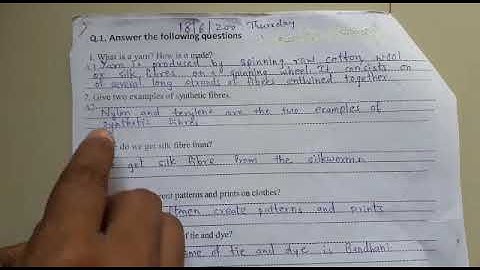 18/6/200 Thursday
Q.1. Answer the following questions
1. What is a yarn? How is it made?
Yarn is produced by spinning raw cotton wool
or silk fibres on a spinning wheel. It consists on
of several long strands of fibres entwined together.
2. Give two examples of synthetic fibres.
Nylon and terylene are the two examples of
synthetic fibres
do we get silk fibre from?
get silk fibre from the silkworms
patterns and prints on clothes?
create patterns and prints
of tie and dye?
me of tie and dye is Bandhani